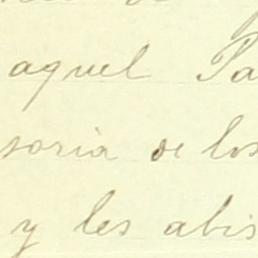 aquel Pa
soria de los
y les abis